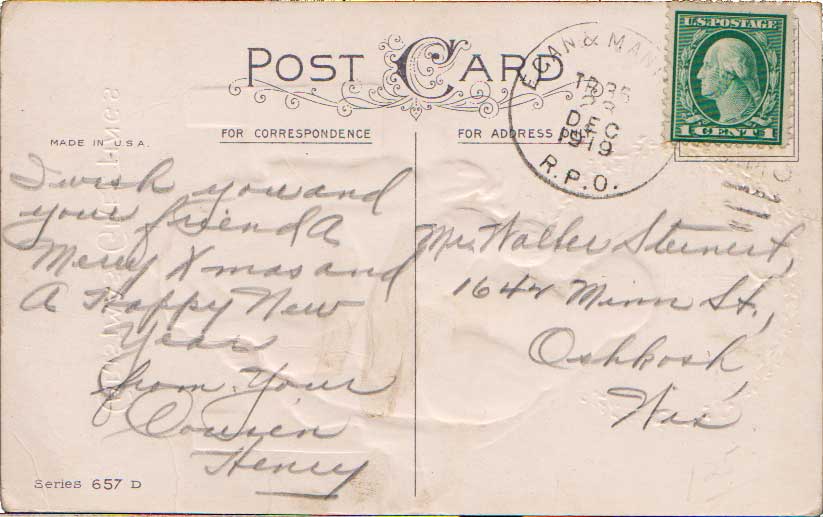 POST CARD
U.S. POSTAGE
1 CENT 1
EGAN & MAN
TR 35
DEC
1919
R.P.O.
MADE IN U.S.A.
FOR CORRESPONDENCE
FOR ADDRESS
I wish you and
your friend A
Merry Xmas and
A Happy New
Year
from Your
Cousin
Henry
Mr. Walter Steinert,
1647 Minn St.,
Oshkosh,
Wis
Series 657 D